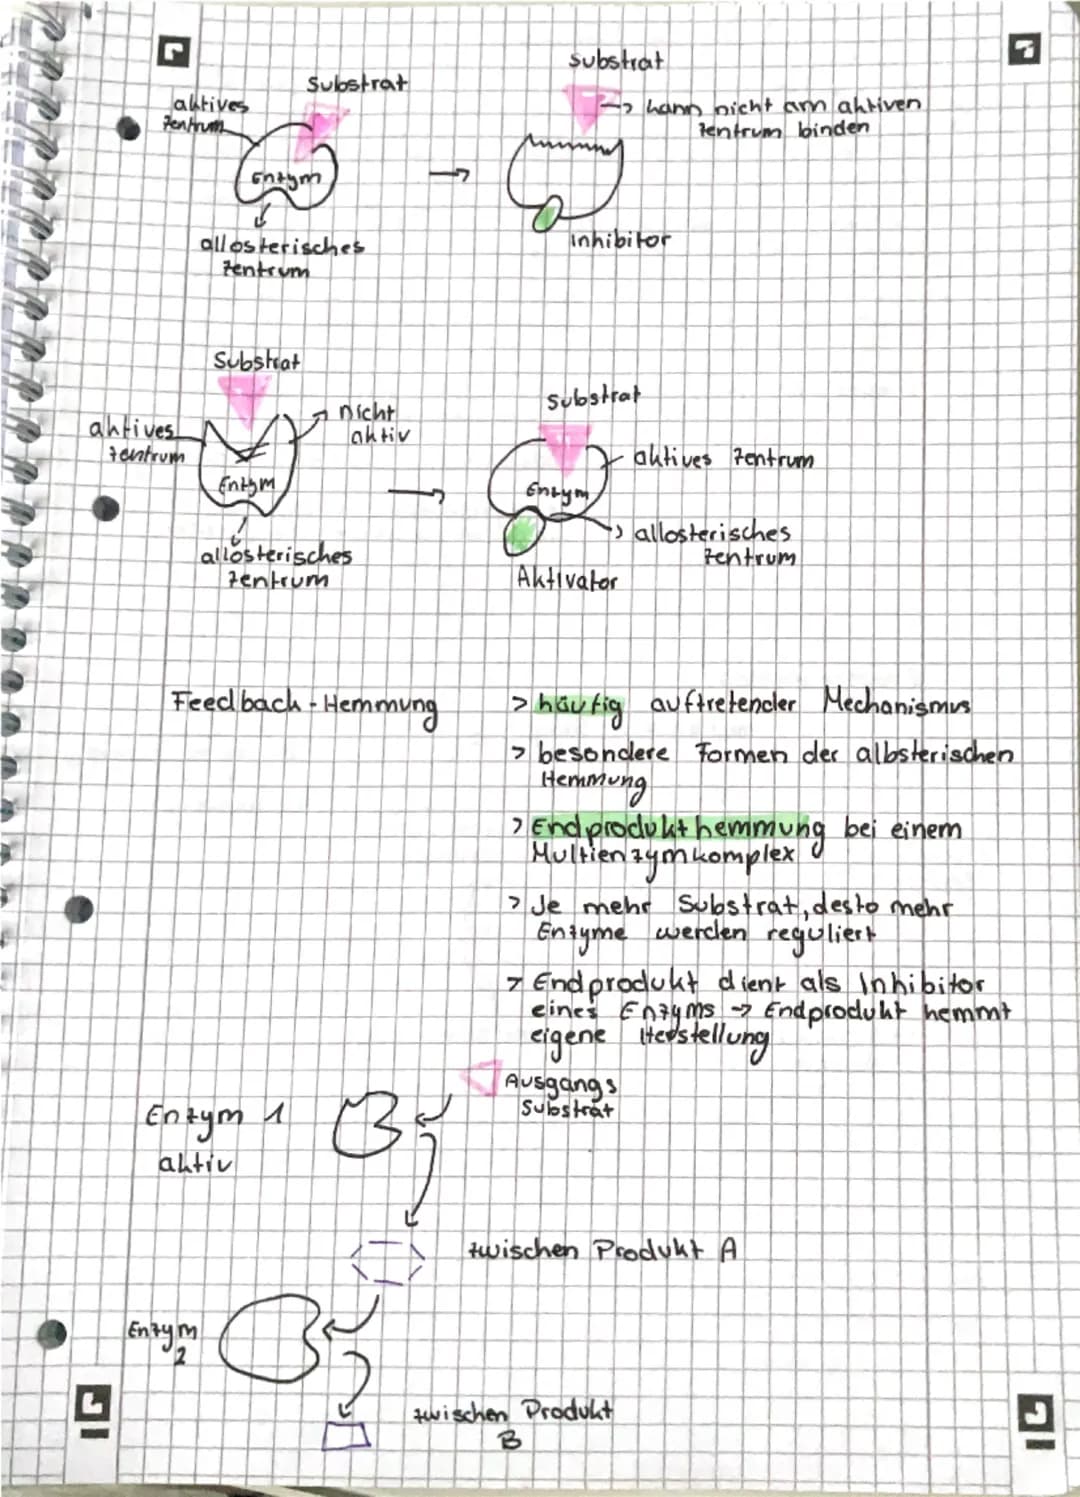 Substrat
aktives
Zentrum
Enzym
allosterisches
Zentrum
Substrat
kann nicht am aktiven
Zentrum binden
Inhibitor
Substrat
aktives
Zentrum
nicht
aktiv
Enzym
allosterisches
Zentrum
Substrat
aktives Zentrum
Enzym
allosterisches
Zentrum
Aktivator
Feedback-Hemmung
> häufig auftretender Mechanismus
> besondere Formen der allosterischen
Hemmung
> Endprodukthemmung bei einem
Multienzymkomplex
> Je mehr Substrat, desto mehr
Enzyme werden reguliert
> Endprodukt dient als Inhibitor
eines Enzyms → Endprodukt hemmt
eigene Herstellung
Ausgangs
Substrat
Enzym 1
aktiv
zwischen Produkt A
Enzym
2
zwischen Produkt
B